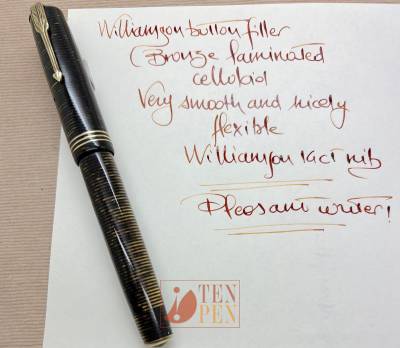 Williamson button filler
(Bronze laminated
celluloid
Very smooth and nicely
flexible
Williamson 14ct nib
Pleasant writer!
TEN
PEN